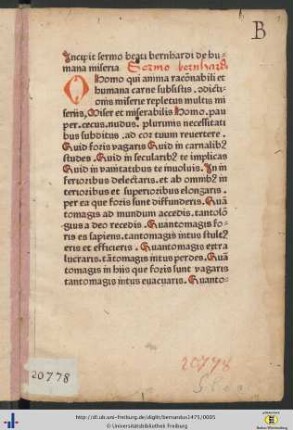 B
Incipit sermo beati bernhardi de hu-
mana miseria Sermo bernhardi
O Homo qui anima racõnabili et
humana carne subsistis . ꝯdicti-
onis miserie repletus multis mi
seriis, Miser et miserabilis Homo . pau
per . cecus . nudus . plurimis necessitati
bus subditus , ad cor tuum reuertere .
Quid foris vagaris Quid in carnalibꝫ
studes . Quid in secularibꝫ te implicas
Quid in vanitatibus te inuoluis . In in
ferioribus delectaris . et ab omnibꝫ in
terioribus et superioribus elongaris .
per ea que foris sunt diffunderis . Quã
tomagis ad mundum accedis . tantolõ
gius a deo recedis . Quantomagis fo-
ris es sapiens . tantomagis intus stult9
eris et efficieris . Quantomagis extra
lucraris . tãtomagis intus perdes . Quã
tomagis in hiis que foris sunt vagaris
tantomagis intus euacuaris . Quanto-
20778
20778
http://dl.ub.uni-freiburg.de/diglit/bernardus1475/0005
© Universitätsbibliothek Freiburg